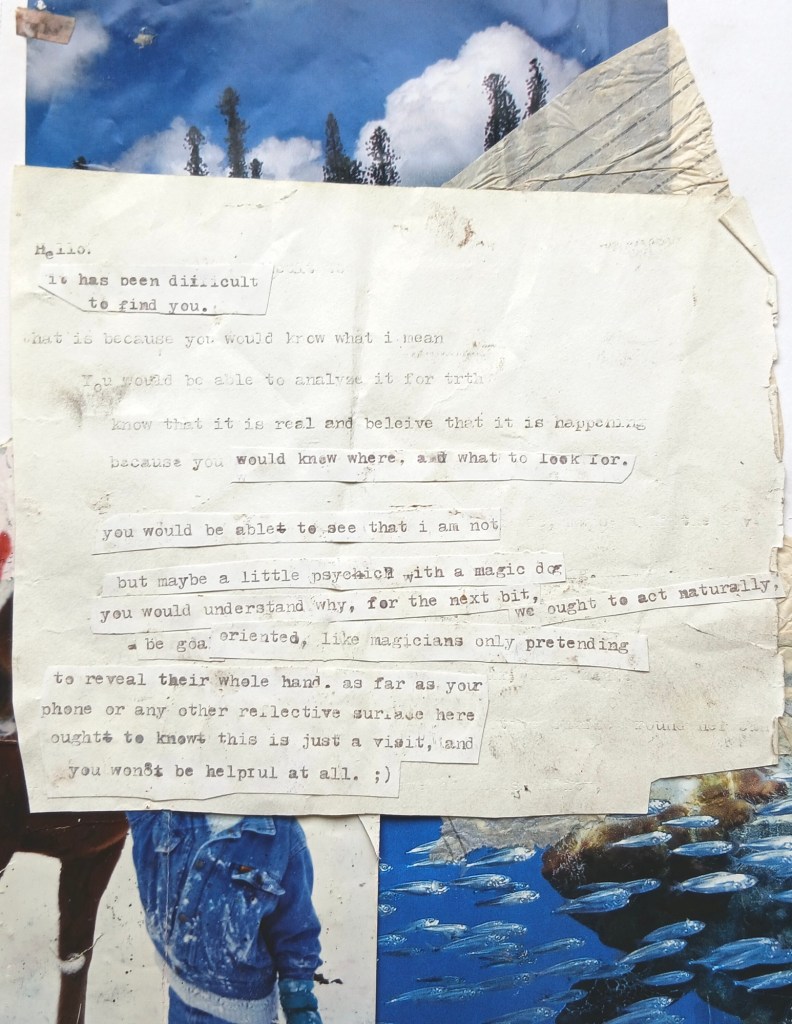 Hello.
it has been difficult
to find you.
hat is because you would know what i mean
You would be able to analyze it for trth
know that it is real and beleive that it is happening
because you would know where, and what to look for.
you would be ablet to see that i am not
but maybe a little psychich with a magic dog
you would understand why, for the next bit, we ought to act naturally,
be goal oriented, like magicians only pretending
to reveal their whole hand. as far as your
phone or any other reflective surface here
ought to knowt this is just a visit, and
you won8t be helpful at all. ;)